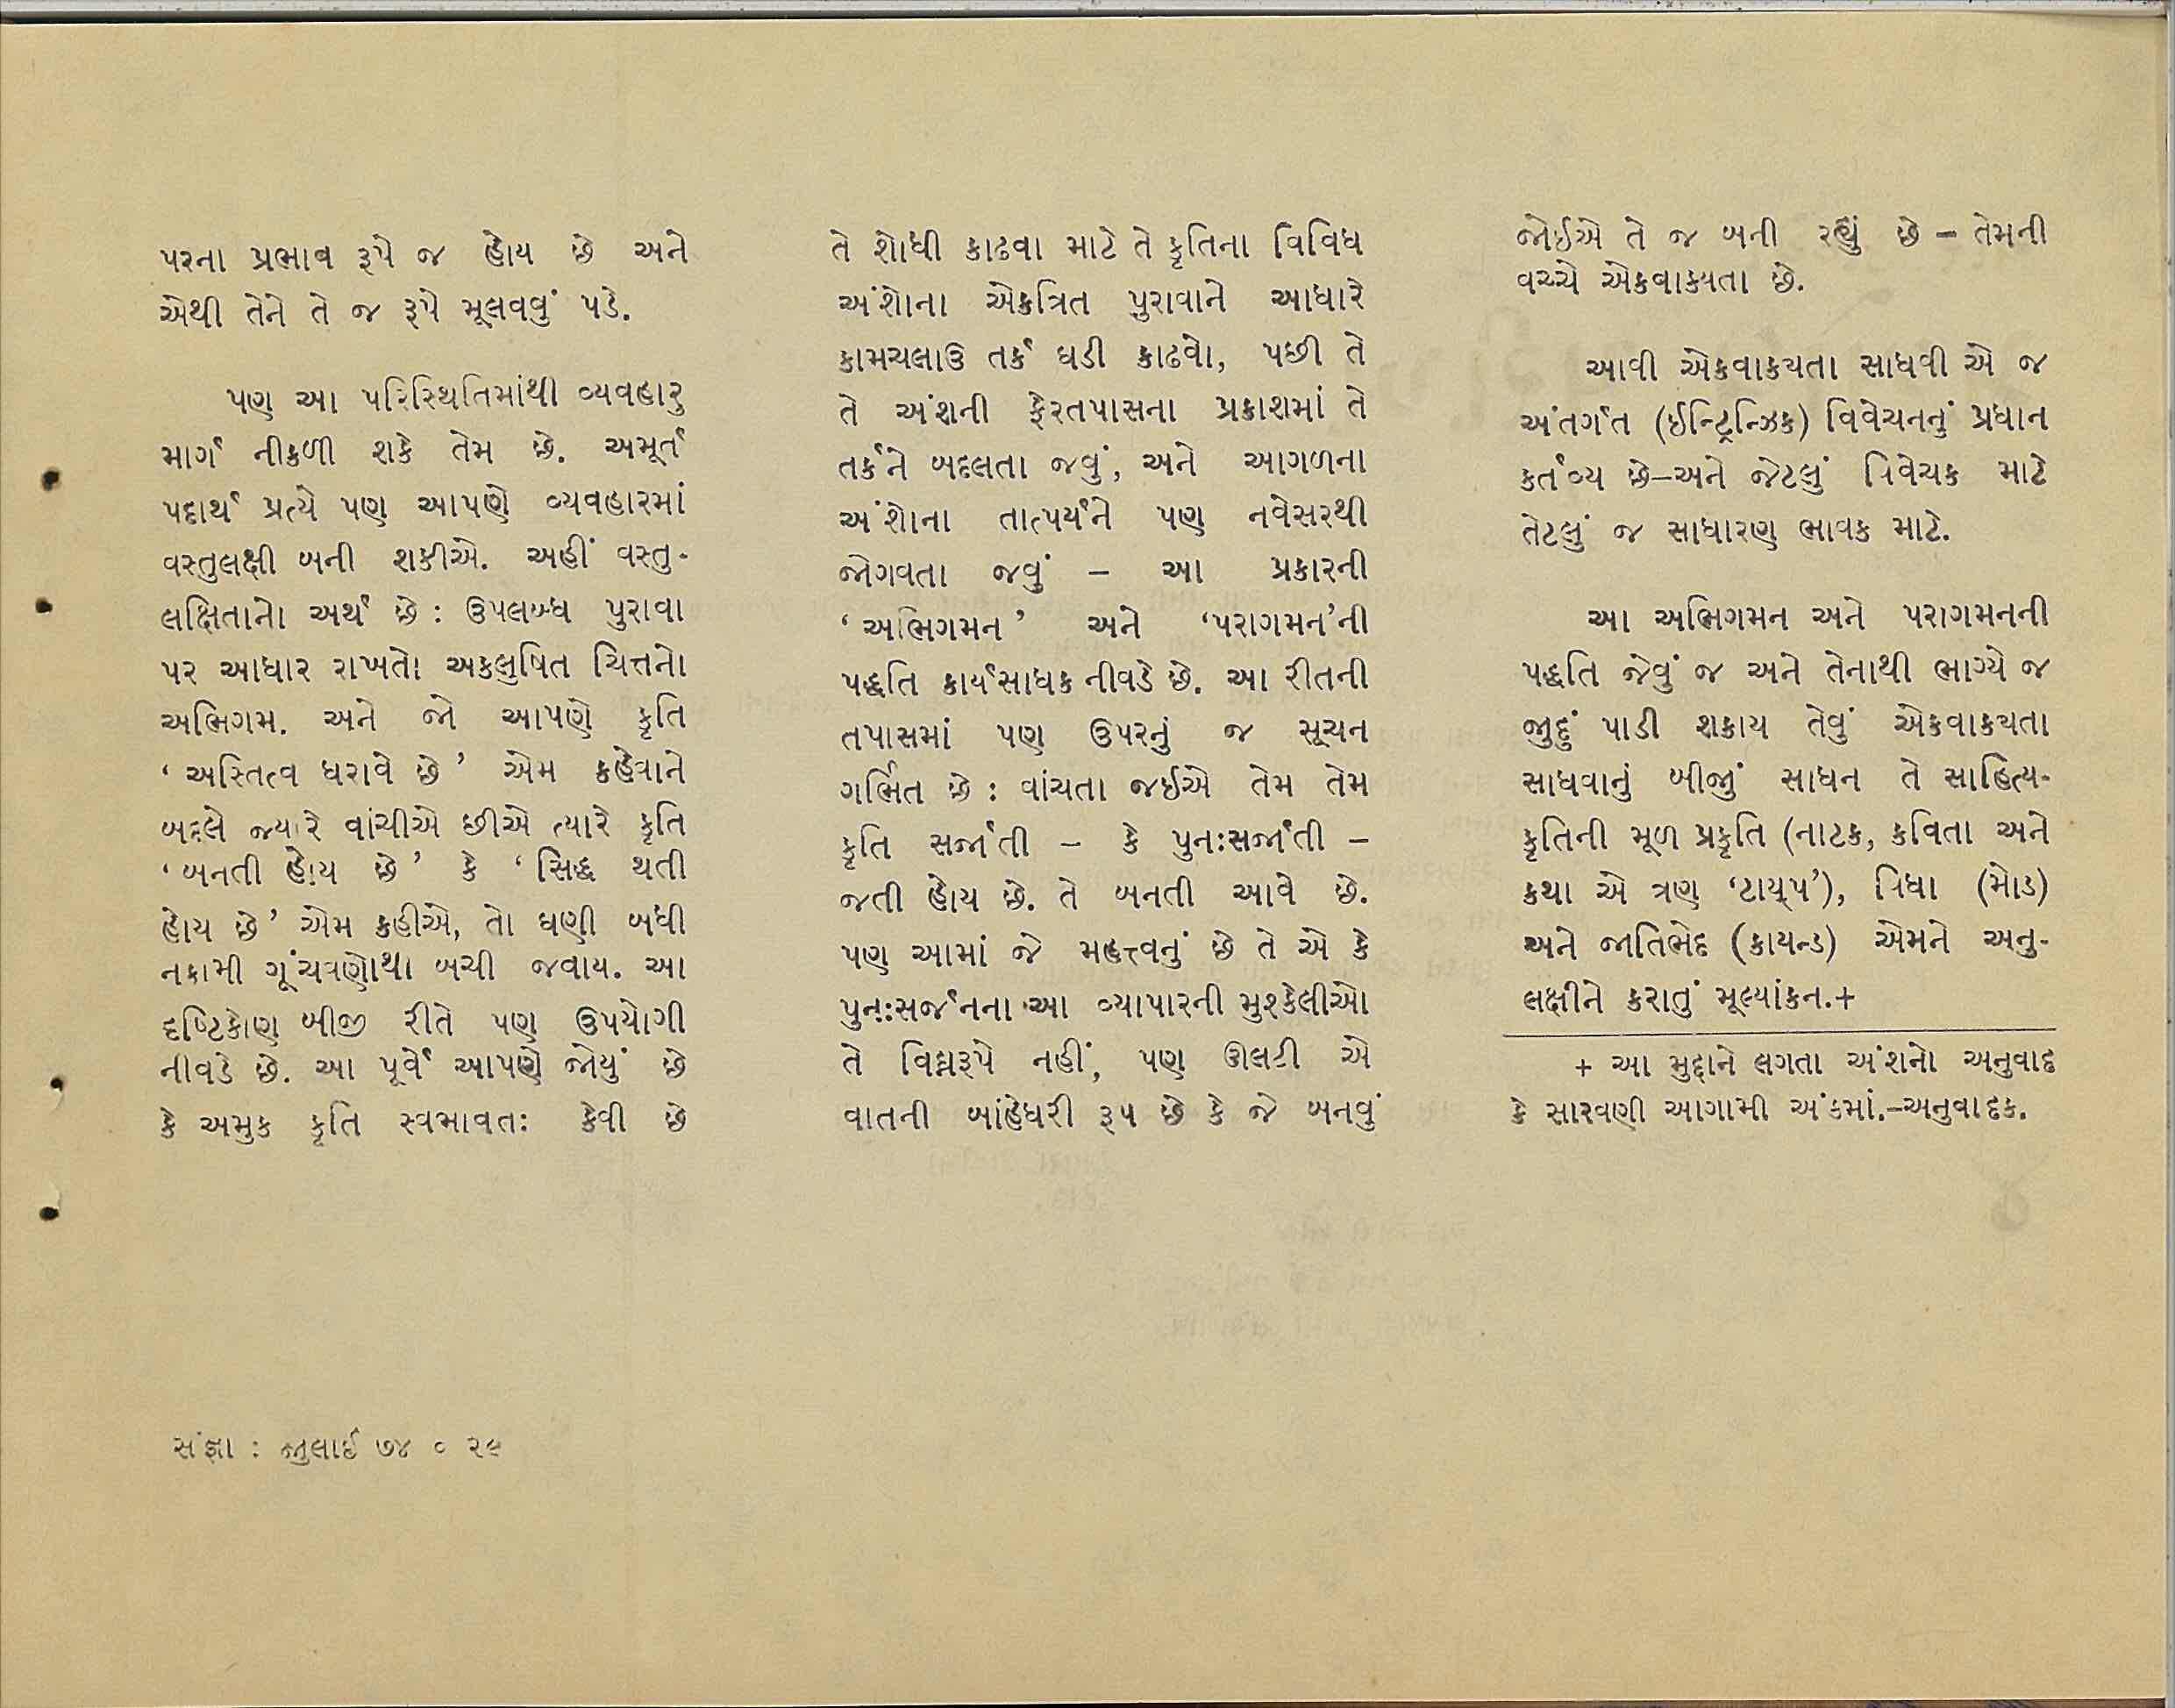 પરના પ્રભાવ રૂપે જ હોય છે અને
એથી તેને તે જ રૂપે મૂલવવું પડે.
પણ આ પરિસ્થિતિમાંથી વ્યવહારુ
માર્ગ નીકળી શકે તેમ છે. અમૂર્ત
પદાર્થ પ્રત્યે પણ આપણે વ્યવહારમાં
વસ્તુલક્ષી બની શકીએ. અહીં વસ્તુ-
લક્ષિતાનો અર્થ છે : ઉપલબ્ધ પુરાવા
પર આધાર રાખતો અકલુષિત ચિત્તનો
અભિગમ. અને જો આપણે કૃતિ
‘ અસ્તિત્વ ધરાવે છે ’ એમ કહેવાને
બદલે જ્યારે વાંચીએ છીએ ત્યારે કૃતિ
‘ બનતી હોય છે ’ કે ‘ સિદ્ધ થતી
હોય છે’ એમ કહીએ, તો ઘણી બધી
નકામી ગૂંચવણોથી બચી જવાય. આ
દૃષ્ટિકોણ બીજી રીતે પણ ઉપયોગી
નીવડે છે. આ પૂર્વે આપણે જોયું છે
કે અમુક કૃતિ સ્વભાવતઃ કેવી છે
તે શોધી કાઢવા માટે તે કૃતિના વિવિધ
અંશોના એકત્રિત પુરાવાને આધારે
કામચલાઉ તર્ક ઘડી કાઢવો, પછી તે
તે અંશની ફેરતપાસના પ્રકાશમાં તે
તર્કને બદલતા જવું, અને આગળના
અંશોના તાત્પર્યને પણ નવેસરથી
જોગવતા જવું – આ પ્રકારની
‘ અભિગમન ’ અને ‘પરાગમન’ની
પદ્ધતિ કાર્યસાધક નીવડે છે. આ રીતની
તપાસમાં પણ ઉપરનું જ સૂચન
ગર્ભિત છે : વાંચતા જઈએ તેમ તેમ
કૃતિ સર્જાતી – કે પુનઃસર્જાતી –
જતી હોય છે. તે બનતી આવે છે.
પણ આમાં જે મહત્ત્વનું છે તે એ કે
પુનઃસર્જનના આ વ્યાપારની મુશ્કેલીઓ
તે વિઘ્નરૂપે નહીં, પણ ઊલટી એ
વાતની બાંહેધરી રૂપ છે કે જે બનવું
જોઈએ તે જ બની રહ્યું છે – તેમની
વચ્ચે એકવાક્યતા છે.
આવી એકવાક્યતા સાધવી એ જ
અંતર્ગત (ઈન્ટ્રિન્ઝિક) વિવેચનનું પ્રધાન
કર્તવ્ય છે–અને જેટલું વિવેચક માટે
તેટલું જ સાધારણ ભાવક માટે.
આ અભિગમન અને પરાગમનની
પદ્ધતિ જેવું જ અને તેનાથી ભાગ્યે જ
જુદું પાડી શકાય તેવું એકવાક્યતા
સાધવાનું બીજું સાધન તે સાહિત્ય-
કૃતિની મૂળ પ્રકૃતિ (નાટક, કવિતા અને
કથા એ ત્રણ ‘ટાય્પ’), વિધા (મોડ)
અને જાતિભેદ (કાયન્ડ) એમને અનુ-
લક્ષીને કરાતું મૂલ્યાંકન.+
+ આ મુદ્દાને લગતા અંશનો અનુવાદ
કે સારવણી આગામી અંકમાં.–અનુવાદક.
સંજ્ઞા : જુલાઈ ૭૪ ૦ ૨૯